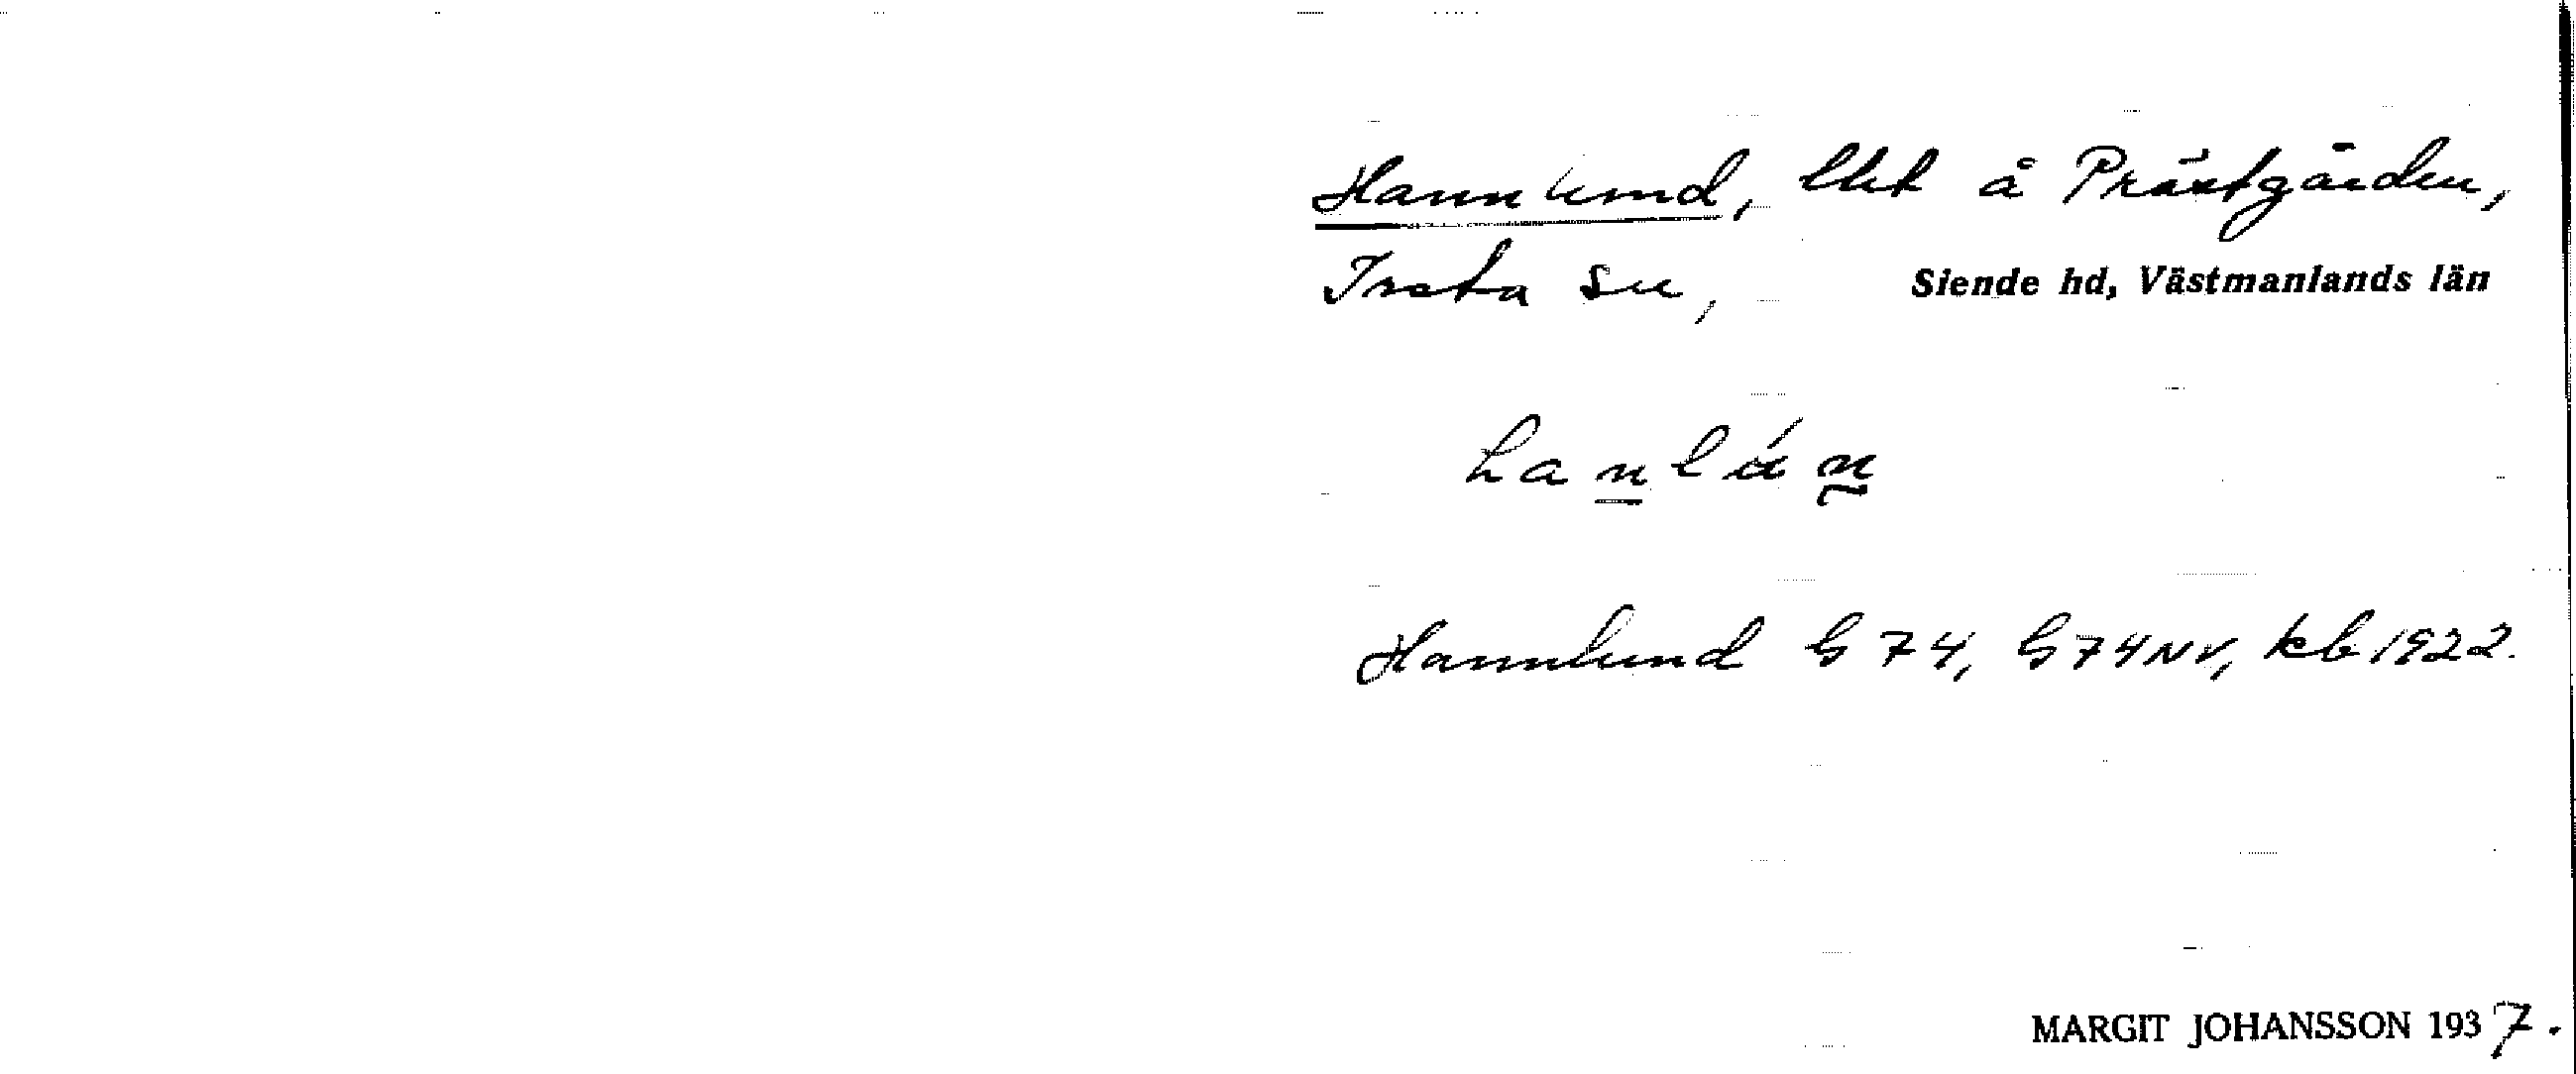 Hannlund, lht å Prästgården,
Irsta sn, Siende hd, Västmanlands län
hanlún
Hannlund G 74, G 74 NV, kb 1922.
MARGIT JOHANSSON 1937.